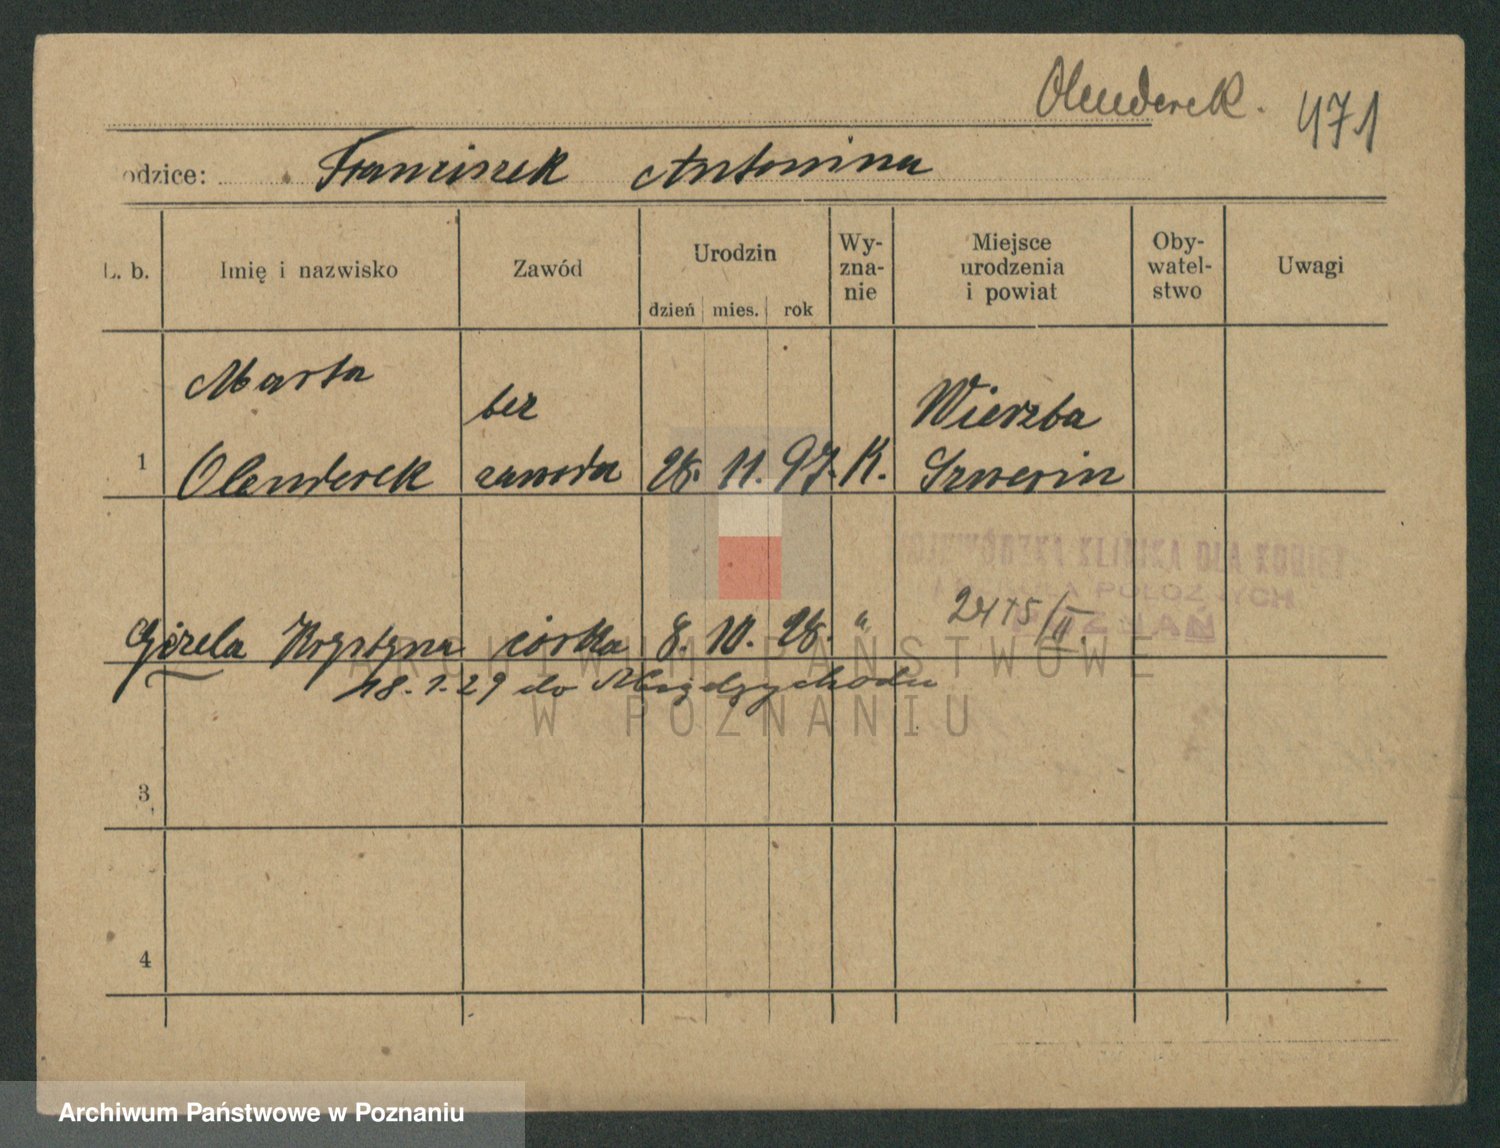 Olenderek. 471
odzice: Franciszek Antonina
L. b. Imię i nazwisko Zawód Urodzin dzień mies. rok Wy-zna-nie Miejsce urodzenia i powiat Oby-watel-stwo Uwagi
Marta
bez
Wierzba
1 Olenderek zawodu 28. 11. 97. K. Szwerin
WOJEWÓDZKA KLINIKA DLA KOBIET
POŁOŻNYCH
POZNAŃ
2475/II.
Gizela Krystyna córka 8. 10. 28. "
18.1.29 do Międzychodu
3
4
ARCHIWUM PAŃSTWOWE
W POZNANIU
Archiwum Państwowe w Poznaniu